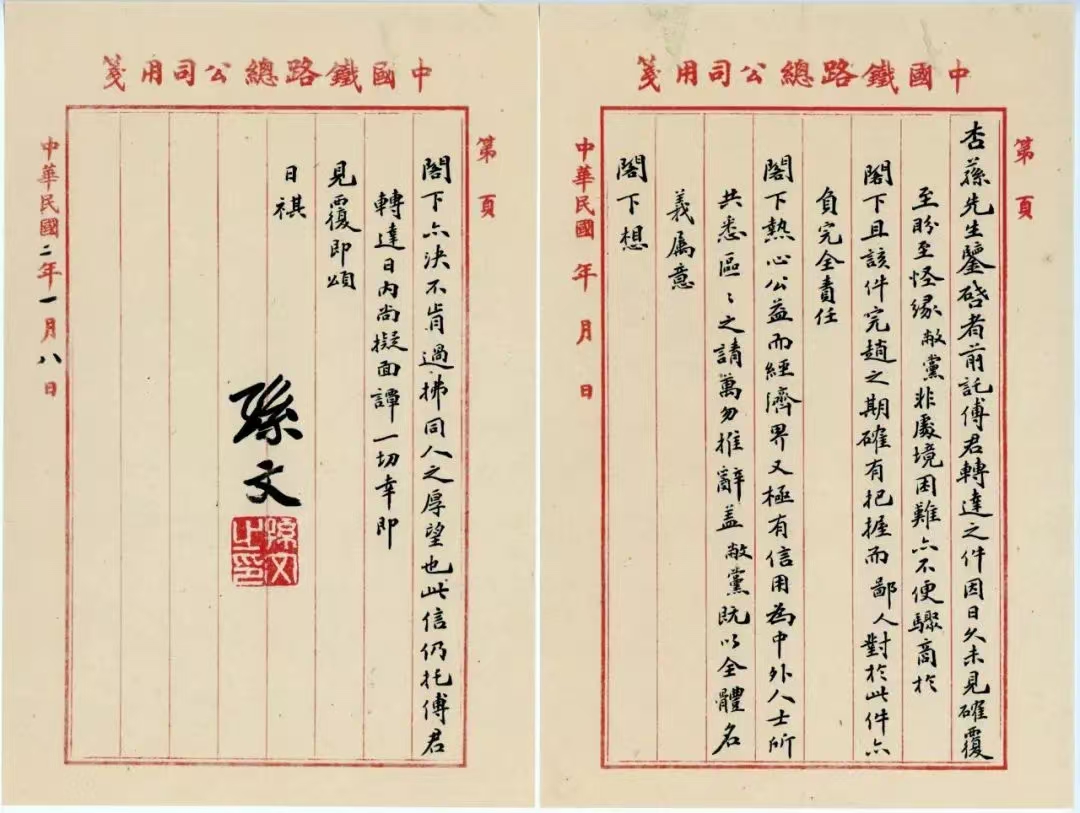 中國鐵路總公司用箋
第　頁
杏蓀先生鑒啓者前託傅君轉達之件因日久未見確覆
至盼至怪緣敝黨非處境困難亦不便驟商於
閣下且該件完趙之期確有把握而鄙人對於此件亦
負完全責任
閣下熱心公益而經濟界又極有信用為中外人士所
共悉區〻之請萬勿推辭蓋敝黨既以全體名
義屬意
閣下想
中華民國　年　月　日
中國鐵路總公司用箋
第　頁
閣下亦決不肯過拂同人之厚望也此信仍托傅君
轉達日內尚擬面譚一切幸即
見覆即頌
日祺
孫文
孫文之印
中華民國二年一月八日